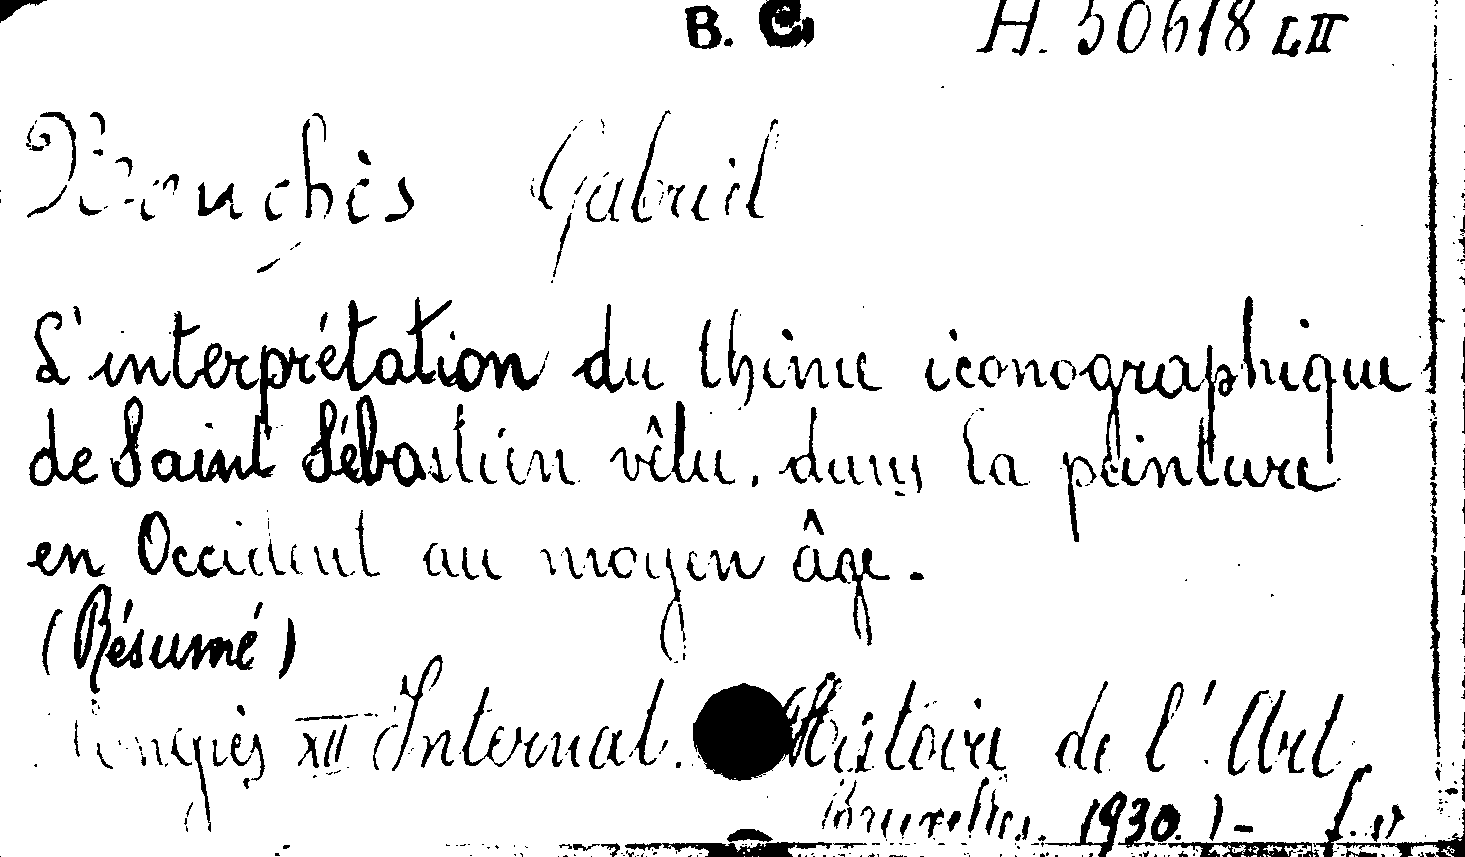 B. C. H. 50618 LII
Rouchès Gabriel
L'interprétation du thème iconographique
de Saint Sébastien vêtu, dans la peinture
en Occident au moyen âge.
(Résumé)
Congrès XII Internat. Histoire de l'Art.
Bruxelles. 1930.) -